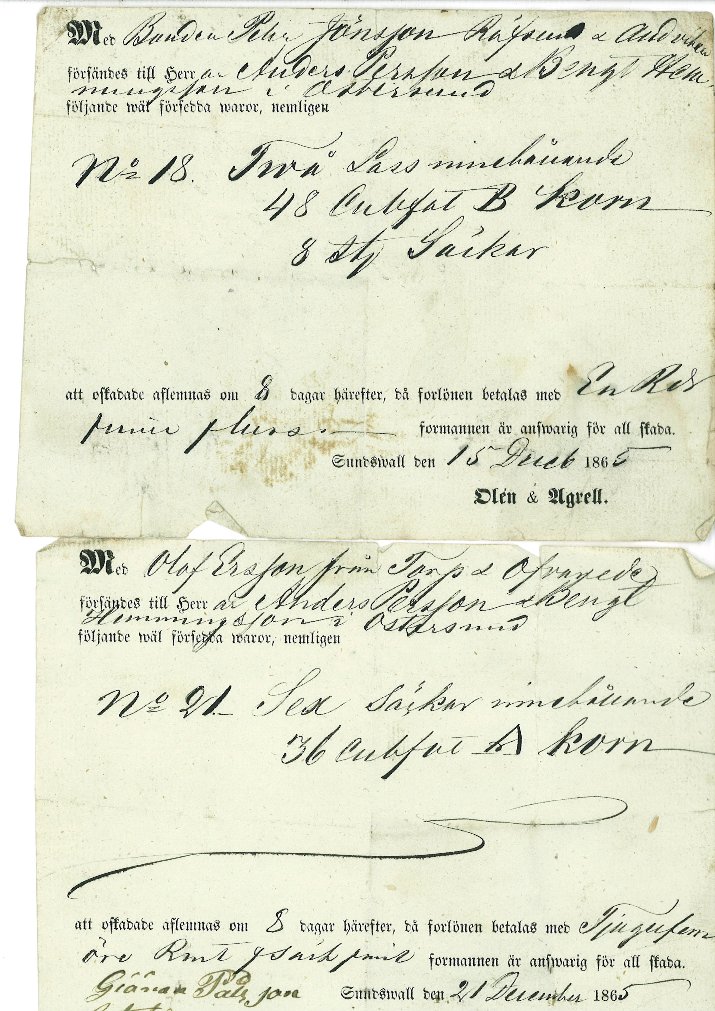 Med Bonden Pehr Jönsson &
försändes till Herrar Anders Persson & Bengt Hem-
mingsson i Östersund
följande wäl försedda waror, nemligen
No 18. Twå Lass innehållande
48 Cubfot B Korn
8 st Säckar
att oskadade aflemnas om 8 dagar härefter, då forlönen betalas med En Rdr
formannen är answarig för all skada.
Sundswall den 15 Decb 1865
Olén & Agrell.
Med Olof Ersson från Torp &
försändes till Herrar Anders Persson & Bengt
Hemmingsson i Östersund
följande wäl försedda waror, nemligen
No 21 Sex Säckar innehållande
36 Cubfot A Korn
att oskadade aflemnas om 8 dagar härefter, då forlönen betalas med Tjugufem
öre Rmt formannen är answarig för all skada.
Sundswall den 21 December 1865